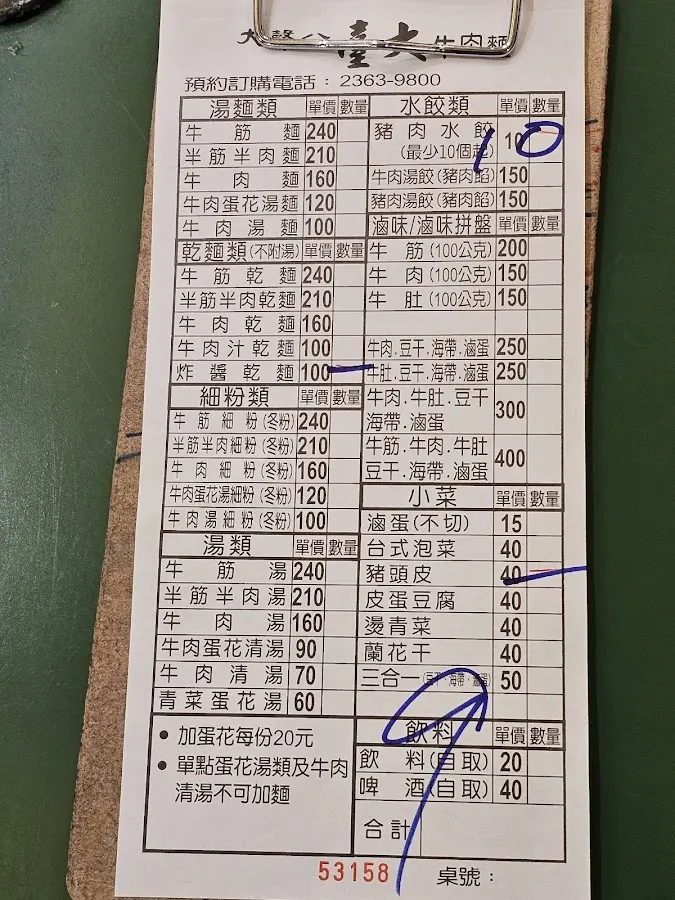 臺大牛肉麵
預約訂購電話：2363-9800
湯麵類 單價 數量
牛筋麵 240
半筋半肉麵 210
牛肉麵 160
牛肉蛋花湯麵 120
牛肉湯麵 100
乾麵類(不附湯) 單價 數量
牛筋乾麵 240
半筋半肉乾麵 210
牛肉乾麵 160
牛肉汁乾麵 100
炸醬乾麵 100
細粉類 單價 數量
牛筋細粉(冬粉) 240
半筋半肉細粉(冬粉) 210
牛肉細粉(冬粉) 160
牛肉蛋花湯細粉(冬粉) 120
牛肉湯細粉(冬粉) 100
湯類 單價 數量
牛筋湯 240
半筋半肉湯 210
牛肉湯 160
牛肉蛋花清湯 90
牛肉清湯 70
青菜蛋花湯 60
• 加蛋花每份20元
• 單點蛋花湯類及牛肉
清湯不可加麵
水餃類 單價 數量
豬肉水餃 10 10
(最少10個起)
牛肉湯餃(豬肉餡) 150
豬肉湯餃(豬肉餡) 150
滷味/滷味拼盤 單價 數量
牛筋(100公克) 200
牛肉(100公克) 150
牛肚(100公克) 150
牛肉.豆干.海帶.滷蛋 250
牛肚.豆干.海帶.滷蛋 250
牛肉.牛肚.豆干
海帶.滷蛋 300
牛筋.牛肉.牛肚
豆干.海帶.滷蛋 400
小菜 單價 數量
滷蛋(不切) 15
台式泡菜 40
豬頭皮 40
皮蛋豆腐 40
燙青菜 40
蘭花干 40
三合一(豆干、海帶、滷蛋) 50
飲料 單價 數量
飲料(自取) 20
啤酒(自取) 40
合計
53158
桌號：